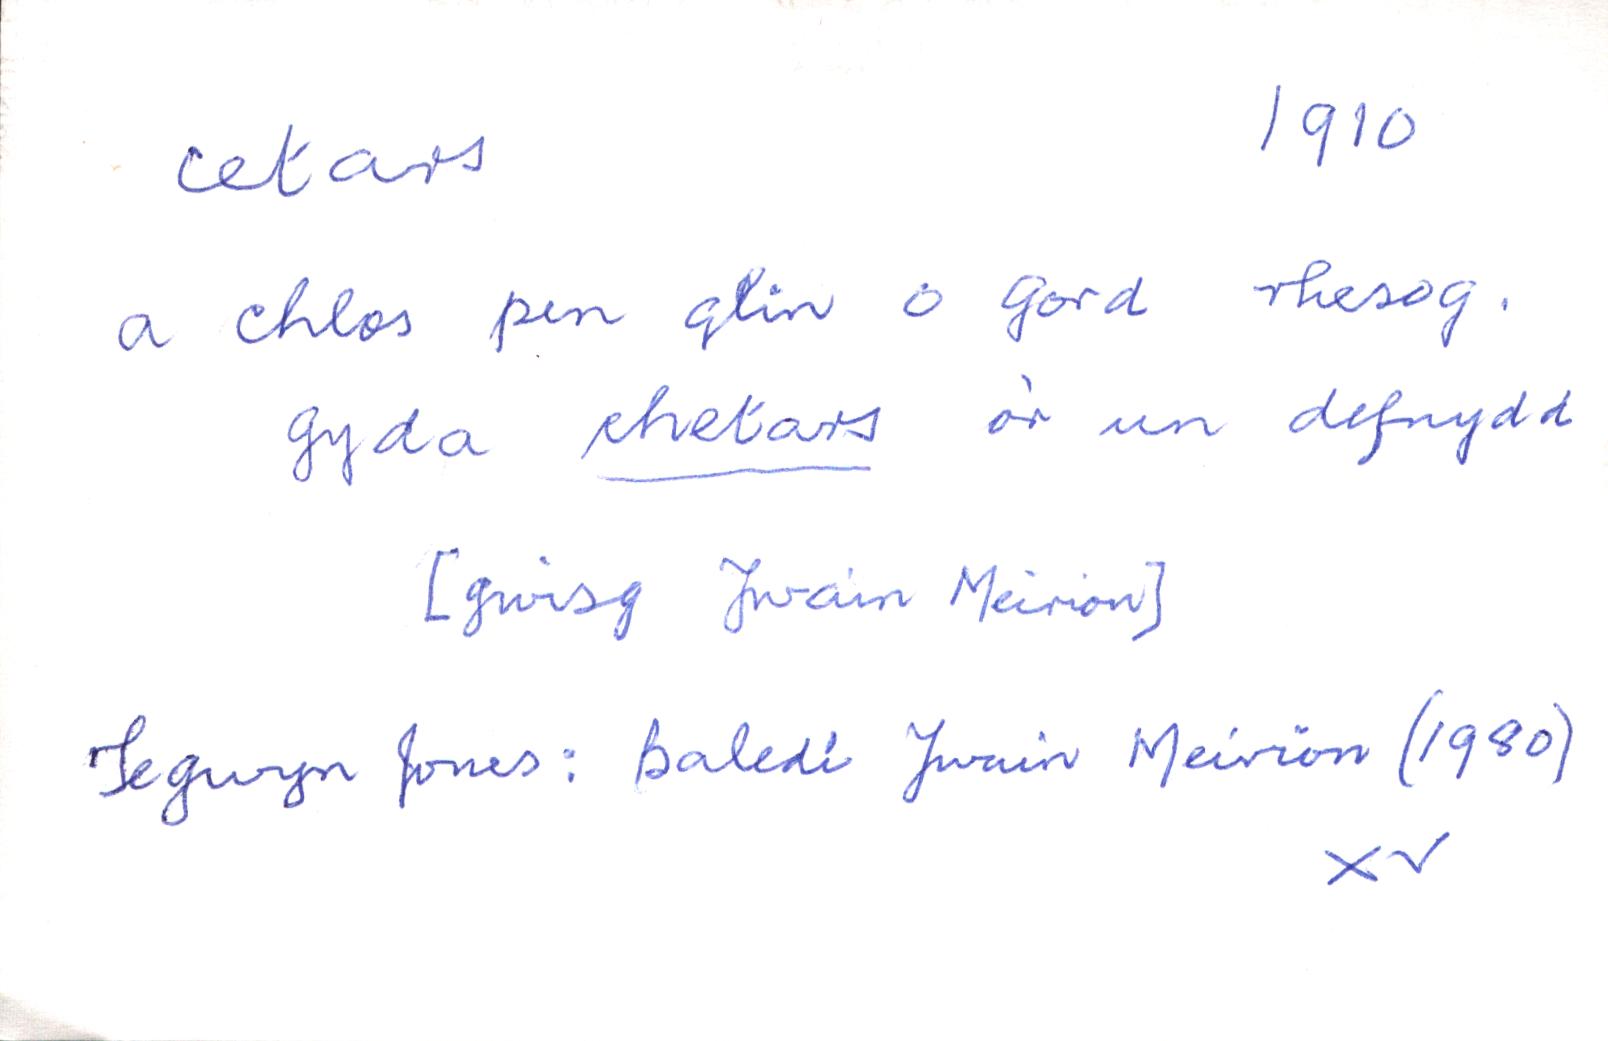 cetars 1910
a chlos pen glin o gord rhesog.
gyda chetars o'r un defnydd
[gwisg Ywain Meirion]
Tegwyn Jones: Baledi Ywain Meirion (1980)
XV